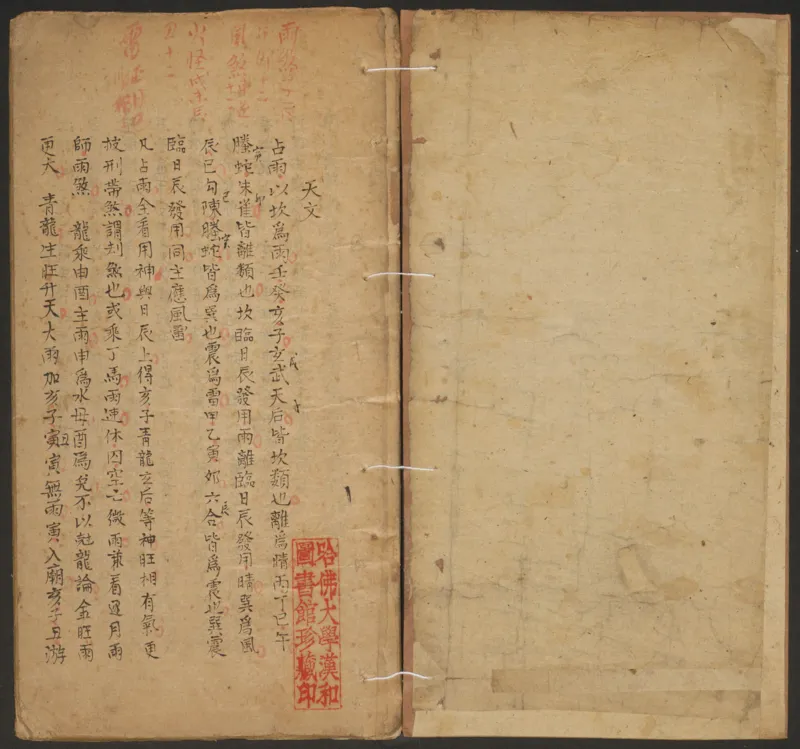 天文
占雨以坎爲雨壬癸亥子玄武天后皆坎類也離爲晴丙丁巳午
螣蛇朱雀皆離類也坎臨日辰發用雨離臨日辰發用晴巽爲風
辰巳勾陳螣蛇皆爲巽也震爲雷甲乙寅卯六合皆爲震也巽震
臨日辰發用同主應風雷
凡占雨全看用神與日辰上得亥子青龍玄后等神旺相有氣更
披刑帶煞謂刦煞也或乘丁馬雨速休囚空亡微雨兼看運月雨
師雨煞 龍乘申酉主雨申爲水母酉爲兌不以尅龍論金旺雨
更大 青龍生旺升天大雨加亥子寅丑寅無雨寅入廟亥子丑游
哈佛大學漢和
圖書館珍藏印